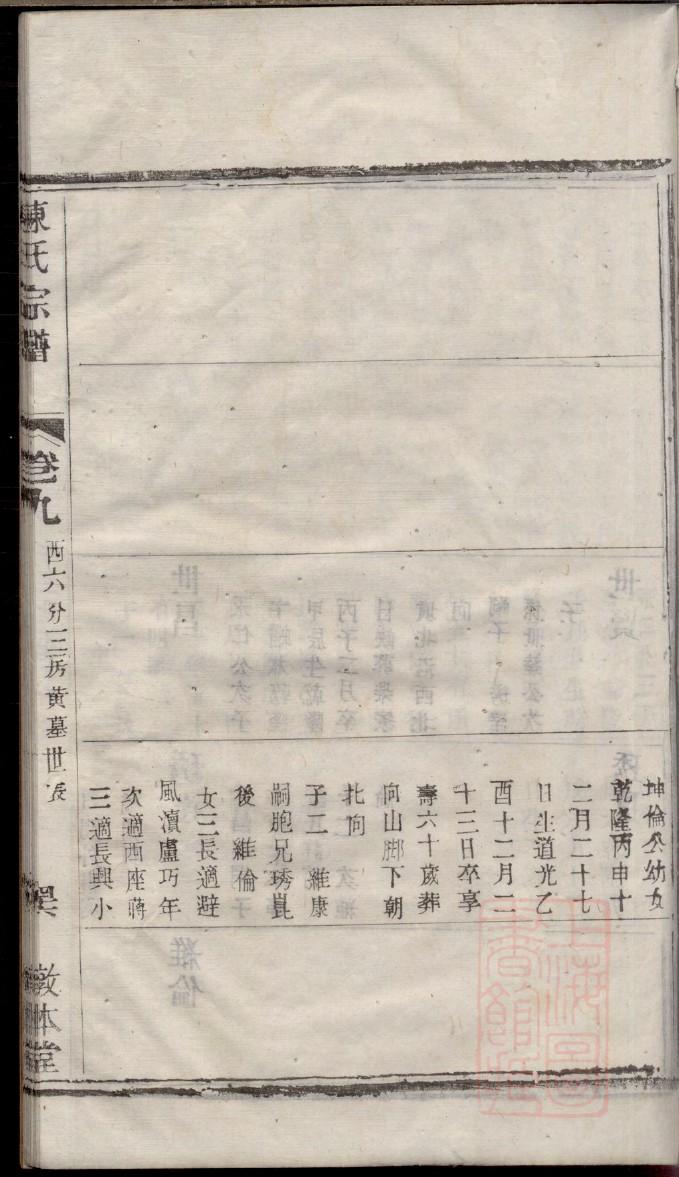 坤倫公幼女
乾隆丙申十
二月二十七
日生道光乙
酉十二月二
十三日卒享
壽六十歲葬
向山腳下朝
北向
子二 維康
嗣胞兄琇崑
後 維倫
女三長適避
風瀆盧巧年
次適西座蔣
三適長興小
陳氏宗譜
卷九
西六分三房黃墓世表
敦本堂
上海圖書館藏